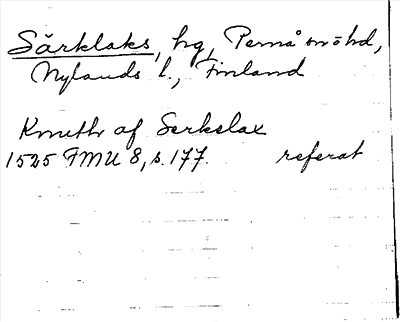 Särklaks, hg, Pernå s:n o hd,
Nylands l., Finland
Knuth af Serkelax
1525 FMU 8, s. 177. referat